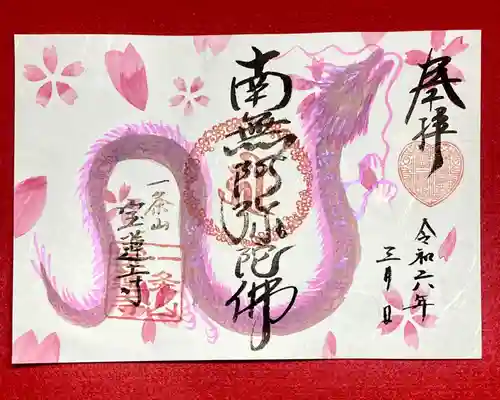 奉拝
令和六年
三月 日
南無阿弥陀佛
一条山
宝蓮寺